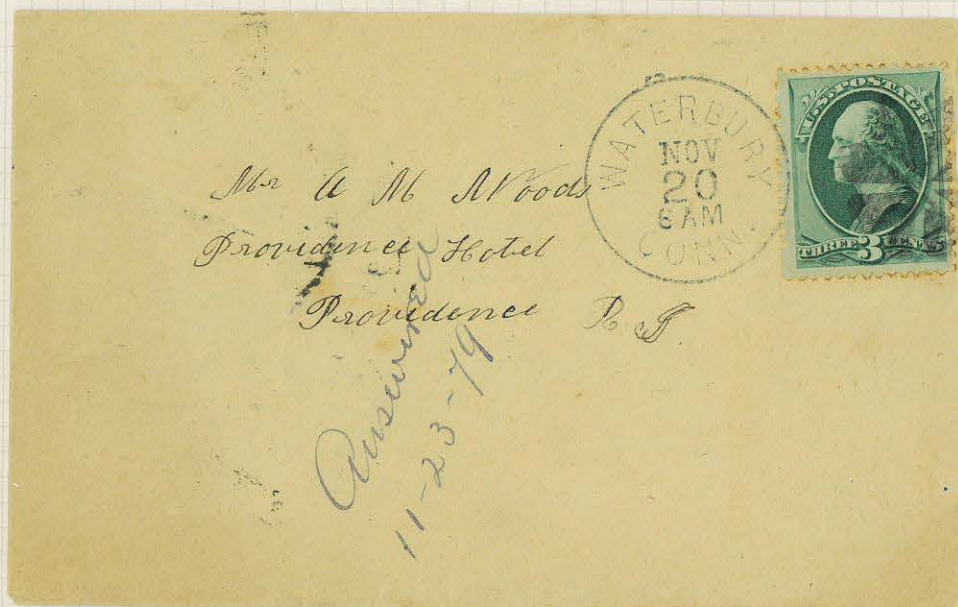 WATERBURY
NOV
20
6 AM
CONN.
U.S. POSTAGE
THREE 3 CENTS
Mr A M Woods
Providence Hotel
Providence R I
Answered
11-23-79